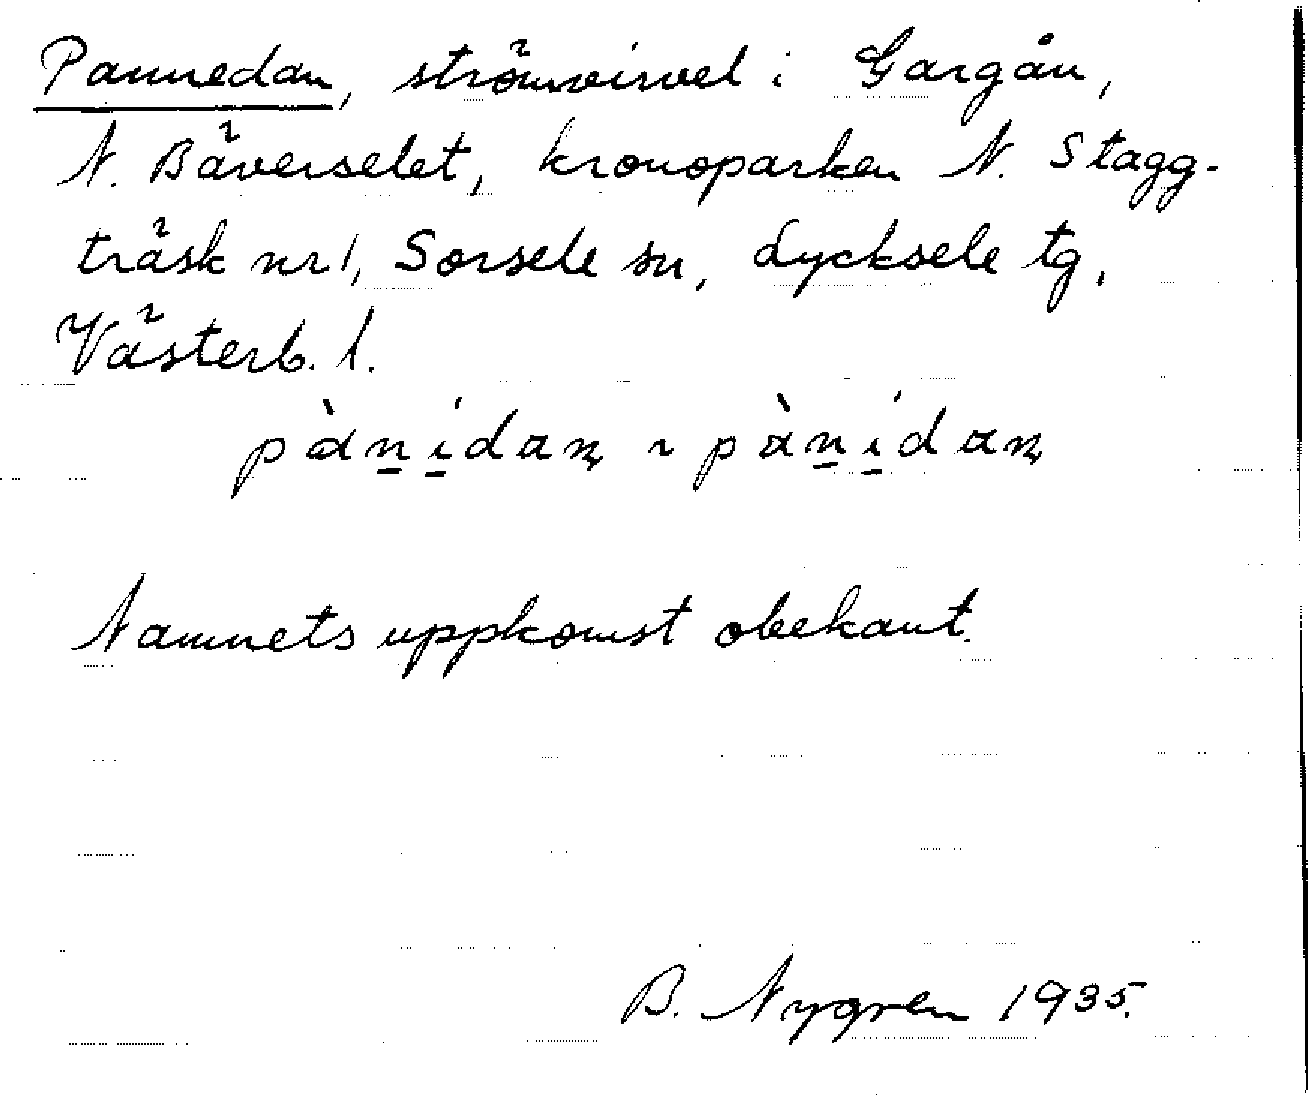 Pannedan, strömvirvel i Gargån,
N. Bäverselet, kronoparken N. Stagg-
träsk nr 1, Sorsele sn, Lycksele tg,
Västerb. l.
pànidaɳ ~ pànidaɳ
Namnets uppkomst obekant.
B. Nygren 1935.